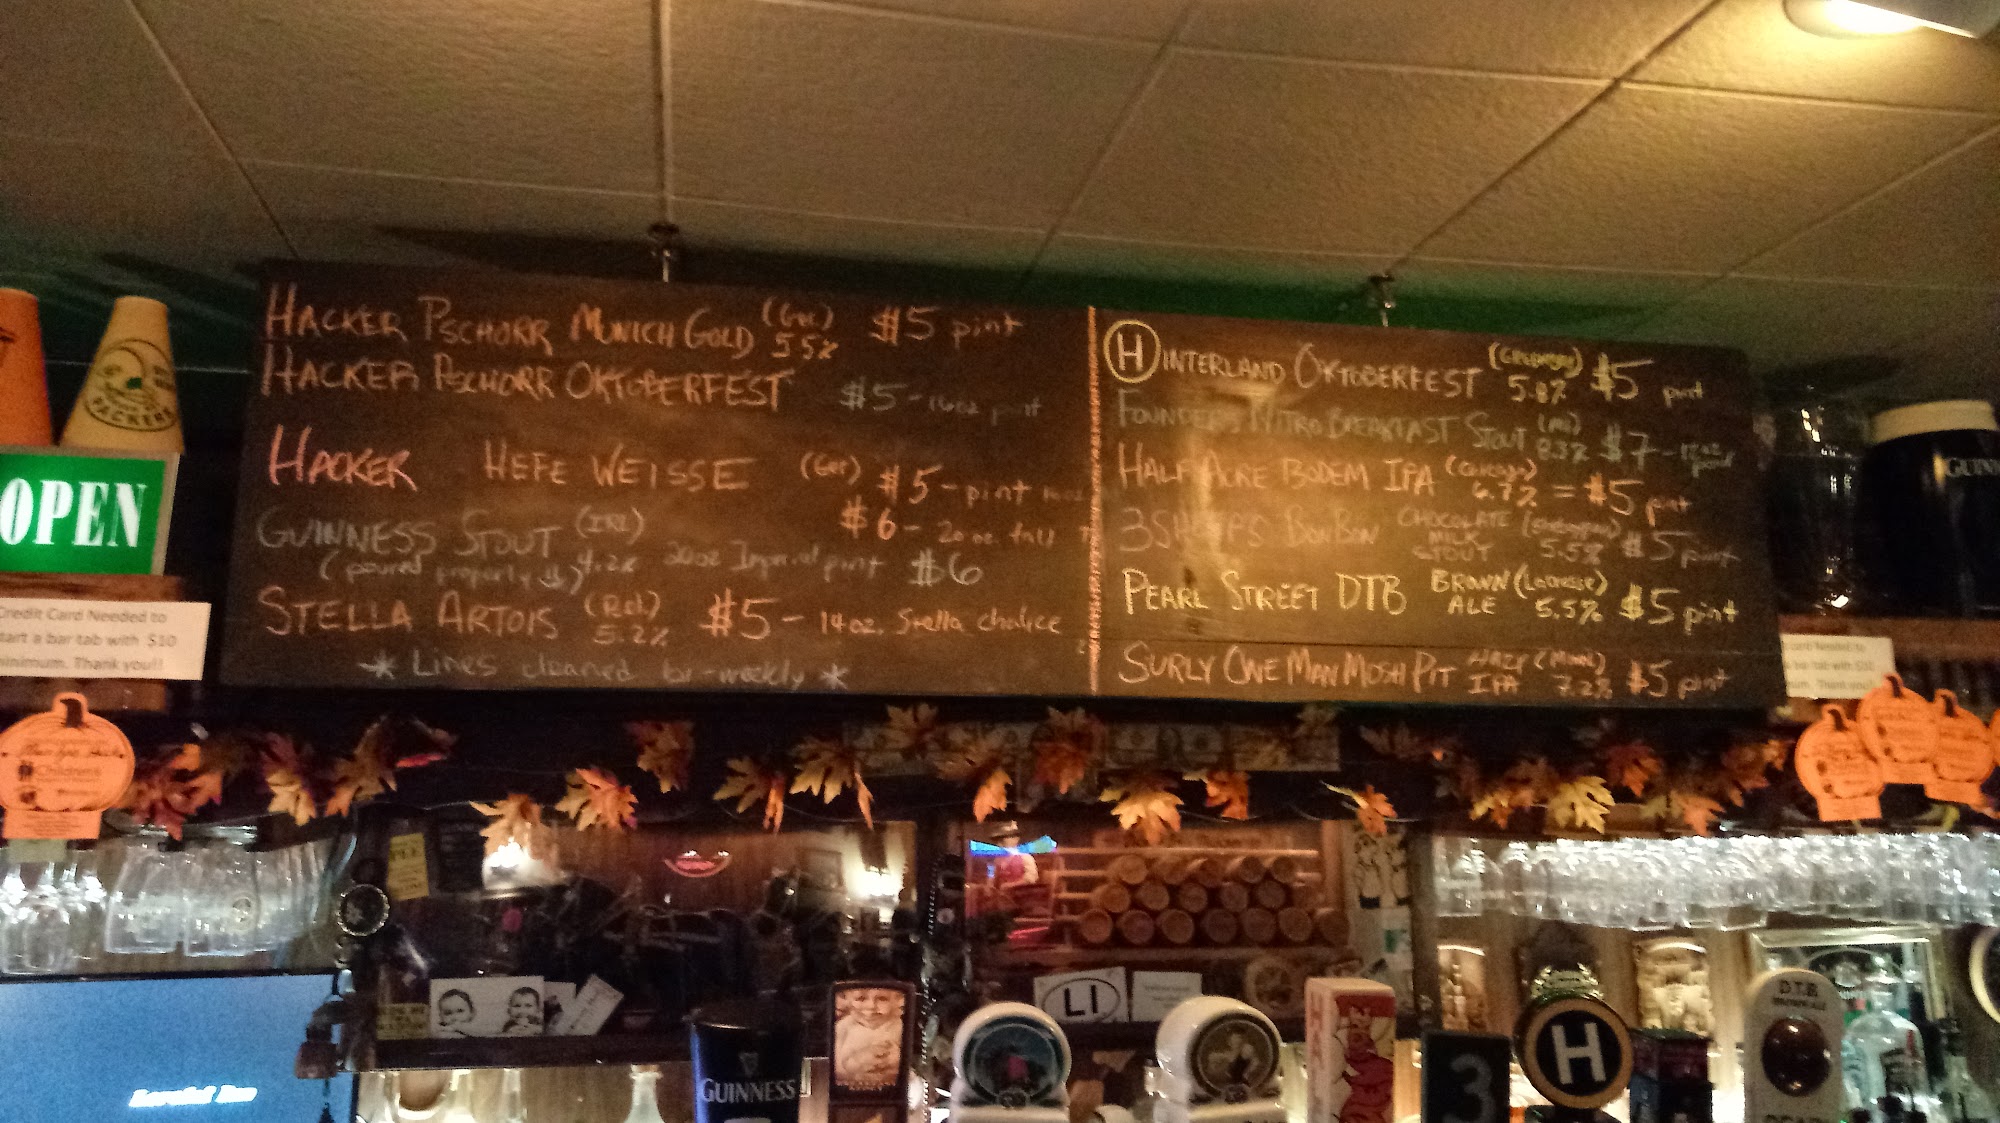 HACKER PSCHORR MUNICH GOLD (Ger) 5.5% $5 pint
HACKER PSCHORR OKTOBERFEST $5 - 16oz pint
HACKER HEFE WEISSE (Ger) $5 - pint
$6 - 20 oz. tall
GUINNESS STOUT (IRL) 4.2%
(poured properly) 20oz Imperial pint $6
STELLA ARTOIS (Bel.) 5.2% $5 - 14oz. Stella chalice
* Lines cleaned bi-weekly *
HINTERLAND OKTOBERFEST (GREENBAY) 5.8% $5 pint
FOUNDERS NITRO BREAKFAST STOUT (MI) 8.3% $7 - 12oz
HALF ACRE BODEM IPA (Chicago) 6.7% = $5 pint
3SHEEPS BONBON CHOCOLATE MILK STOUT (Sheboygan) 5.5% $5 pint
PEARL STREET DTB BROWN ALE (LaCrosse) 5.5% $5 pint
SURLY ONE MAN MOSH PIT HAZY IPA (Minn) 7.2% $5 pint
PACKERS
OPEN
Credit Card Needed to
start a bar tab with $10
minimum. Thank you!!
Children's
GUINNESS
LI
GUINNESS
HALF
ACRE
3
H
D.T.B.